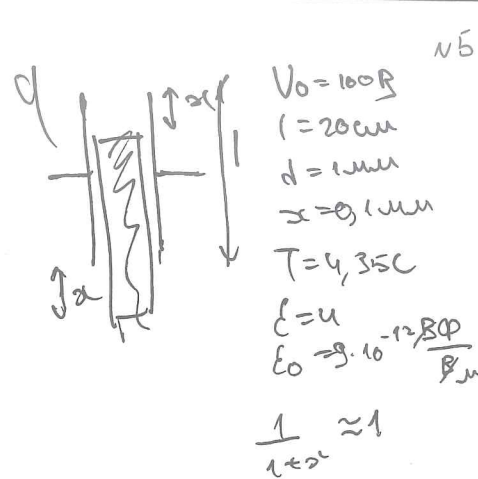 N5
q
x
l
x
V₀ = 100 В
l = 20 см
d = 1 мм
x = 0,1 мм
T = 4,35 с
ε = 4
ε₀ = 9·10⁻¹² Ф/м
1/(1+x) ≈ 1